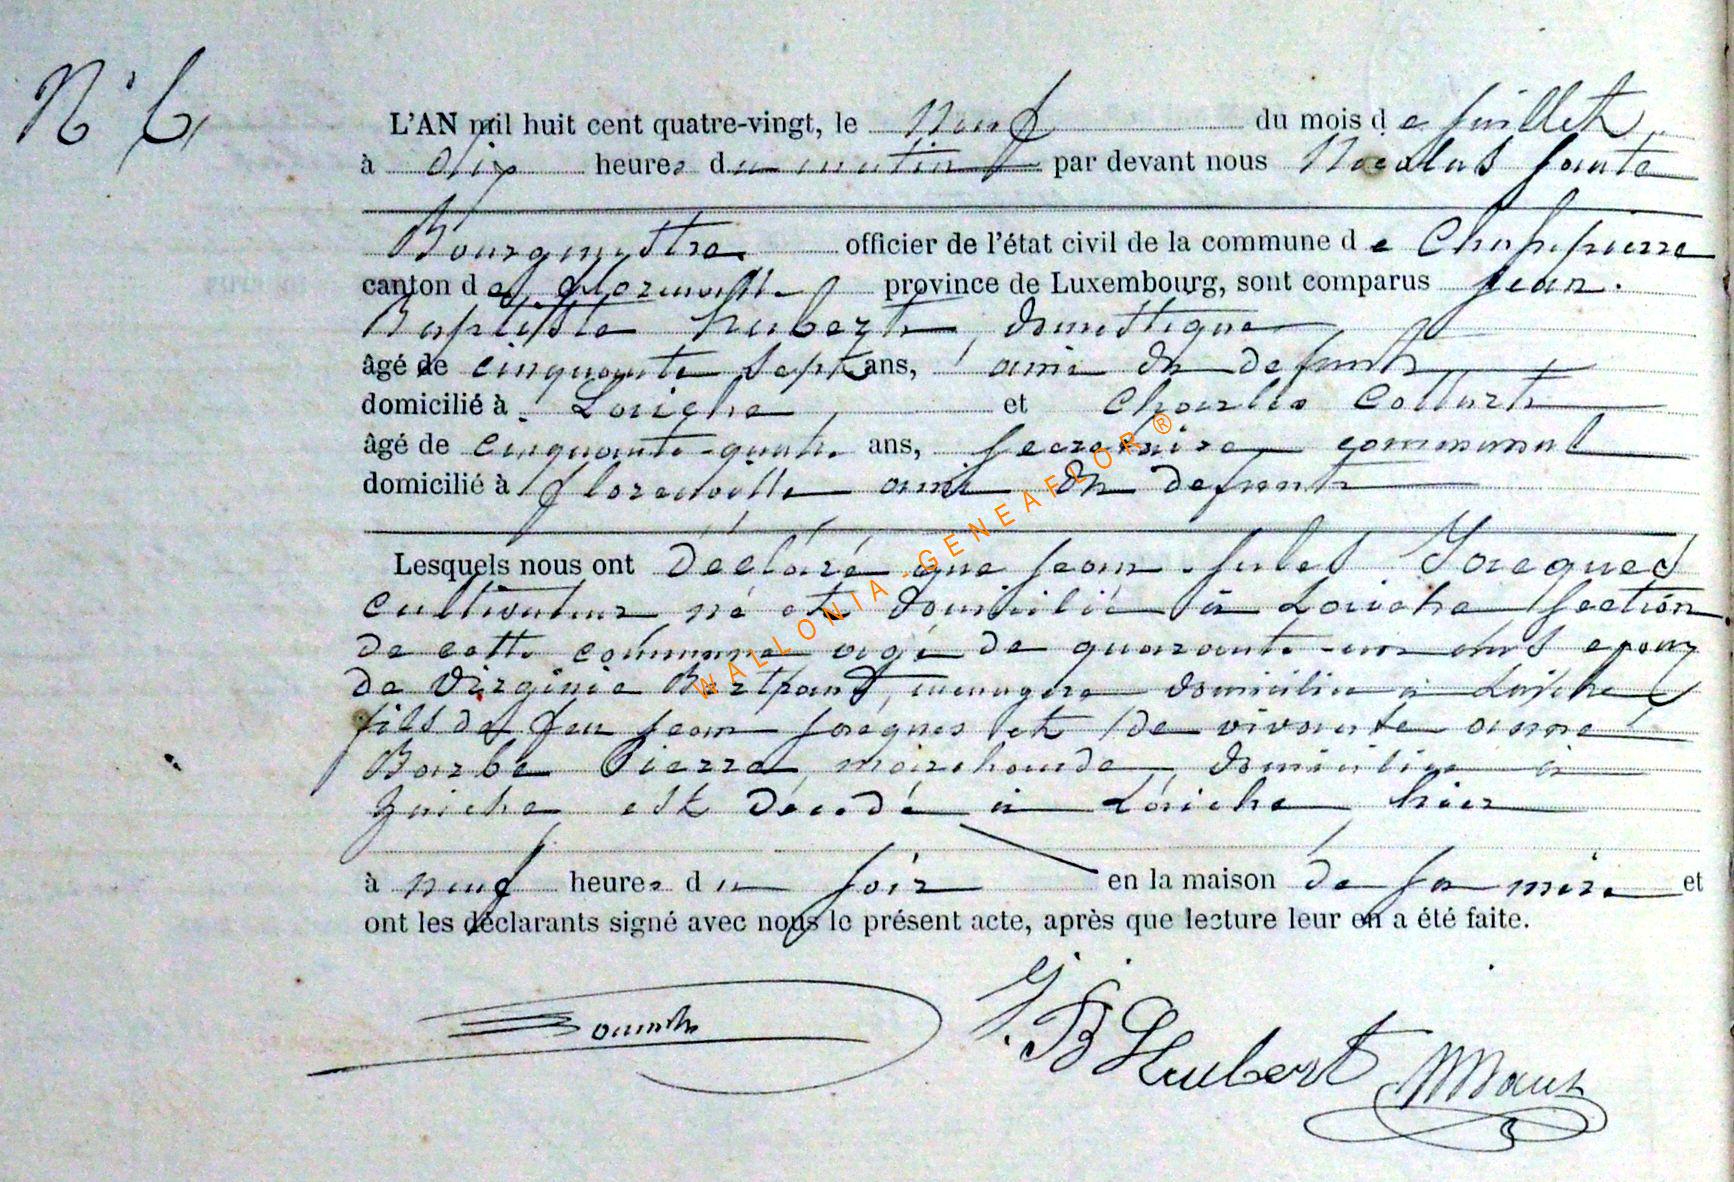 N° 6
L'AN mil huit cent quatre-vingt, le neuf du mois de juillet
à dix heures du matin par devant nous Nicolas
Bourgmestre officier de l'état civil de la commune de Chassepierre
canton de Florenville province de Luxembourg, sont comparus Jean
Baptiste Hubert, domestique
âgé de cinquante sept ans, ami du defunt
domicilié à Laiche, et Charles Collart
âgé de cinquante-quatre ans, secretaire communal
domicilié à florenville ami du defunt
Lesquels nous ont déclaré que jean-jules Jacques
cultivateur né et domicilié à Laiche section
de cette commune agé de quarante-un ans epoux
de Virginie Bertrand, menagere domiciliée à Laiche
fils de feu jean jacques et de vivante anne
Barbe Pierre, marchande, domiciliée à
Laiche est décédé à Laiche hier
à neuf heures du soir en la maison de sa mère et
ont les déclarants signé avec nous le présent acte, après que lecture leur en a été faite.
J. B Hubert
WALLONIA-GENEAFLOR ®